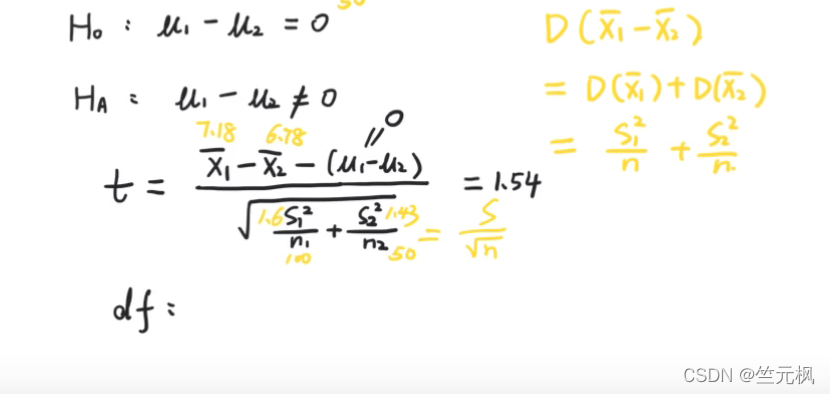 50
H₀ : μ₁ - μ₂ = 0
H_A : μ₁ - μ₂ ≠ 0
7.18 6.78 0
t = (x̄₁ - x̄₂ - (μ₁-μ₂)) / √(1.6 S₁²/n₁ + S₂²/n₂ 1.43) = 1.54
100 50 = S/√n
df :
D(x̄₁-x̄₂)
= D(x̄₁)+D(x̄₂)
= S₁²/n + S₂²/n.
CSDN @竺元枫